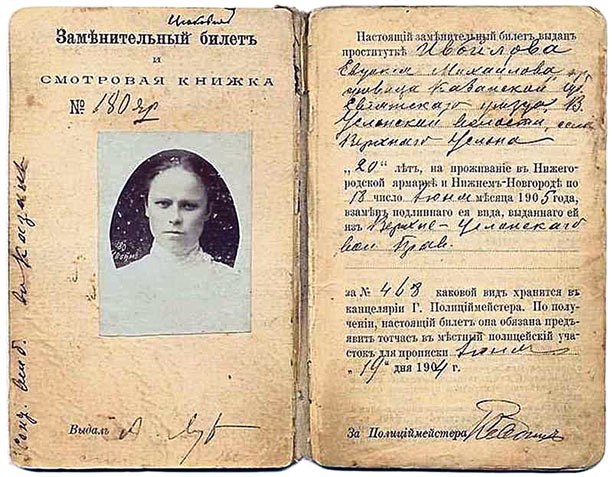 Замѣнительный билетъ
и
СМОТРОВАЯ КНИЖКА
№ 180 яр
Выдалъ А.
Настоящій замѣнительный билетъ выданъ
проституткѣ Ивойлова
Евдокія Михайлова
дѣвица Казанской губ.
Свіяжскаго уѣзда, В.
Услонской волости, села
Верхняго Услона
„20" лѣтъ, на проживаніе въ Нижего-
родской ярмаркѣ и Нижнемъ-Новгородѣ по
18 число іюня мѣсяца 1905 года,
взамѣнъ подлиннаго ея вида, выданнаго ей
изъ Верхне-Услонскаго
вол Прав.
за № 468 каковой видъ хранится въ
канцеляріи Г. Полиціймейстера. По полу-
ченіи, настоящій билетъ она обязана предъ-
явить тотчасъ въ мѣстный полицейскій уча-
стокъ для прописки іюня
„19" дня 1904 г.
За Полиціймейстера